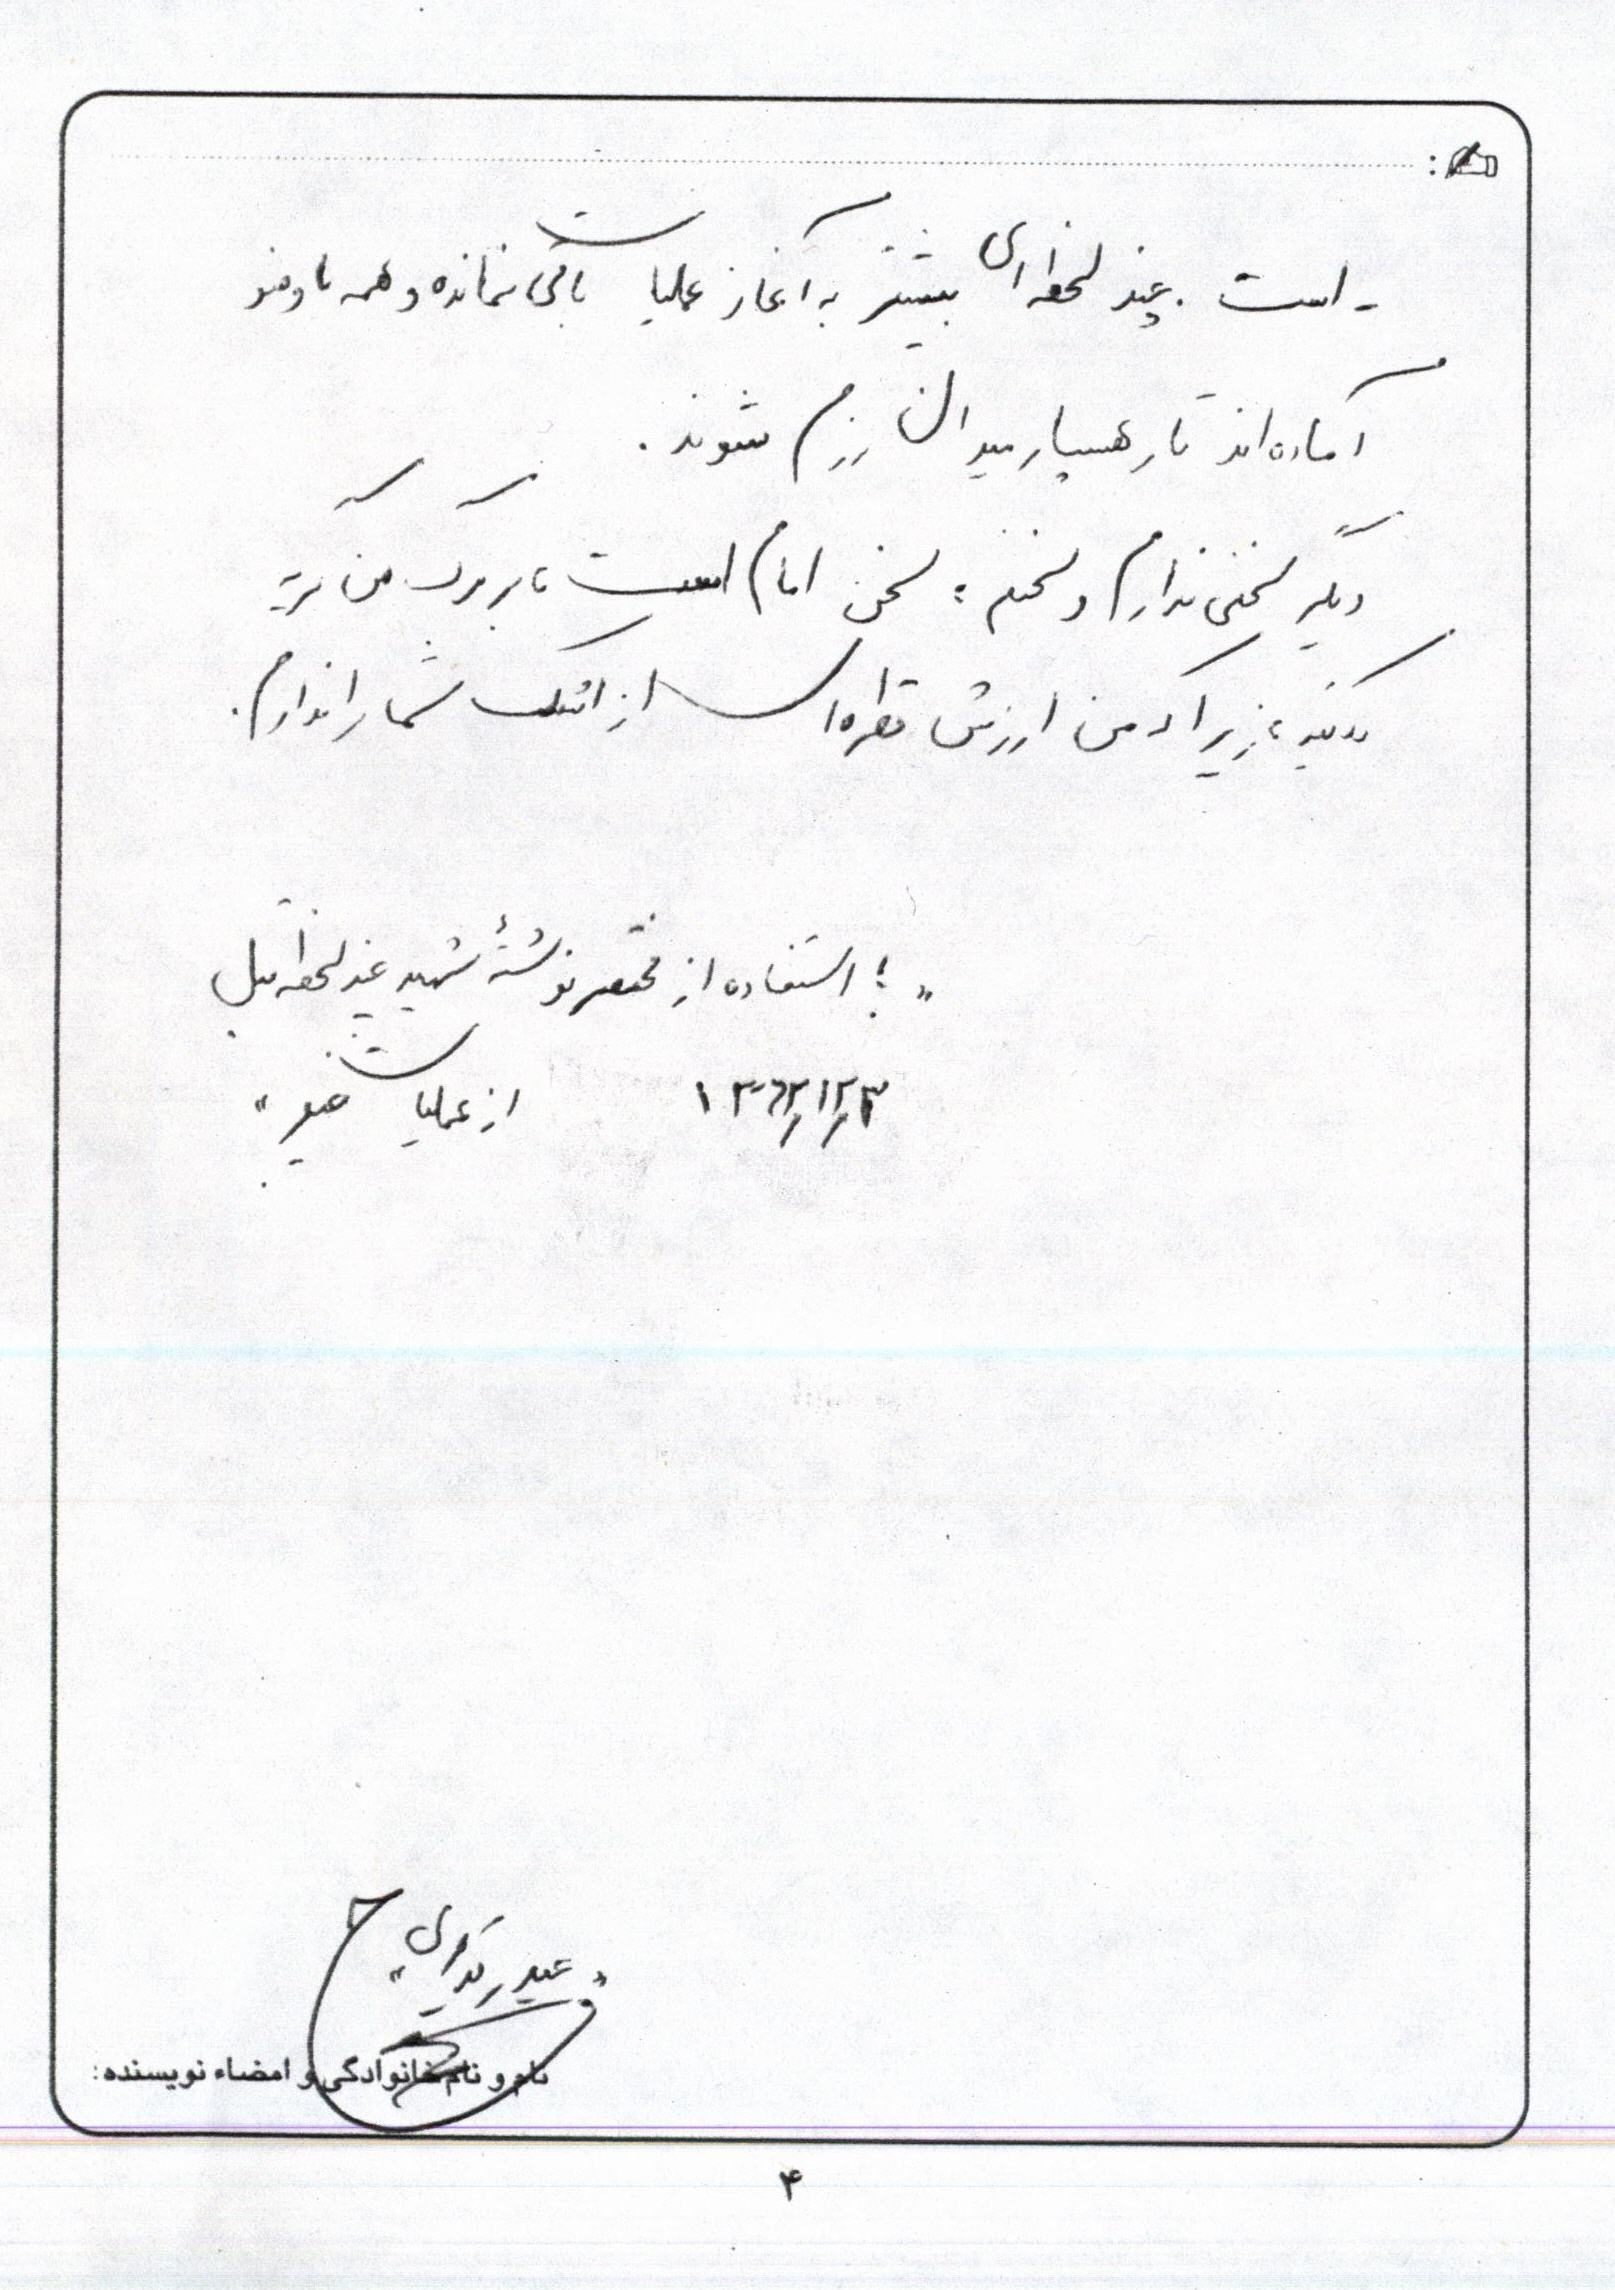 - است . چند لحظه ای بیشتر به آغاز عملیات باقی نمانده و همه با وضو
آماده اند تا رهسپار میدان رزم شوند .
دیگر سخنی ندارم و سخنم ؛ سخن امام است ، بر مرگ من گریه
نکنید ، زیرا که من ارزش قطره ای از اشک شما را ندارم .
" ؛ استفاده از مختصر نوشتهٔ شهید چند لحظه قبل
از عملیات خیبر " ۱۳۶۲/۱۲/۳
نام و نام خانوادگی و امضاء نویسنده:
۴